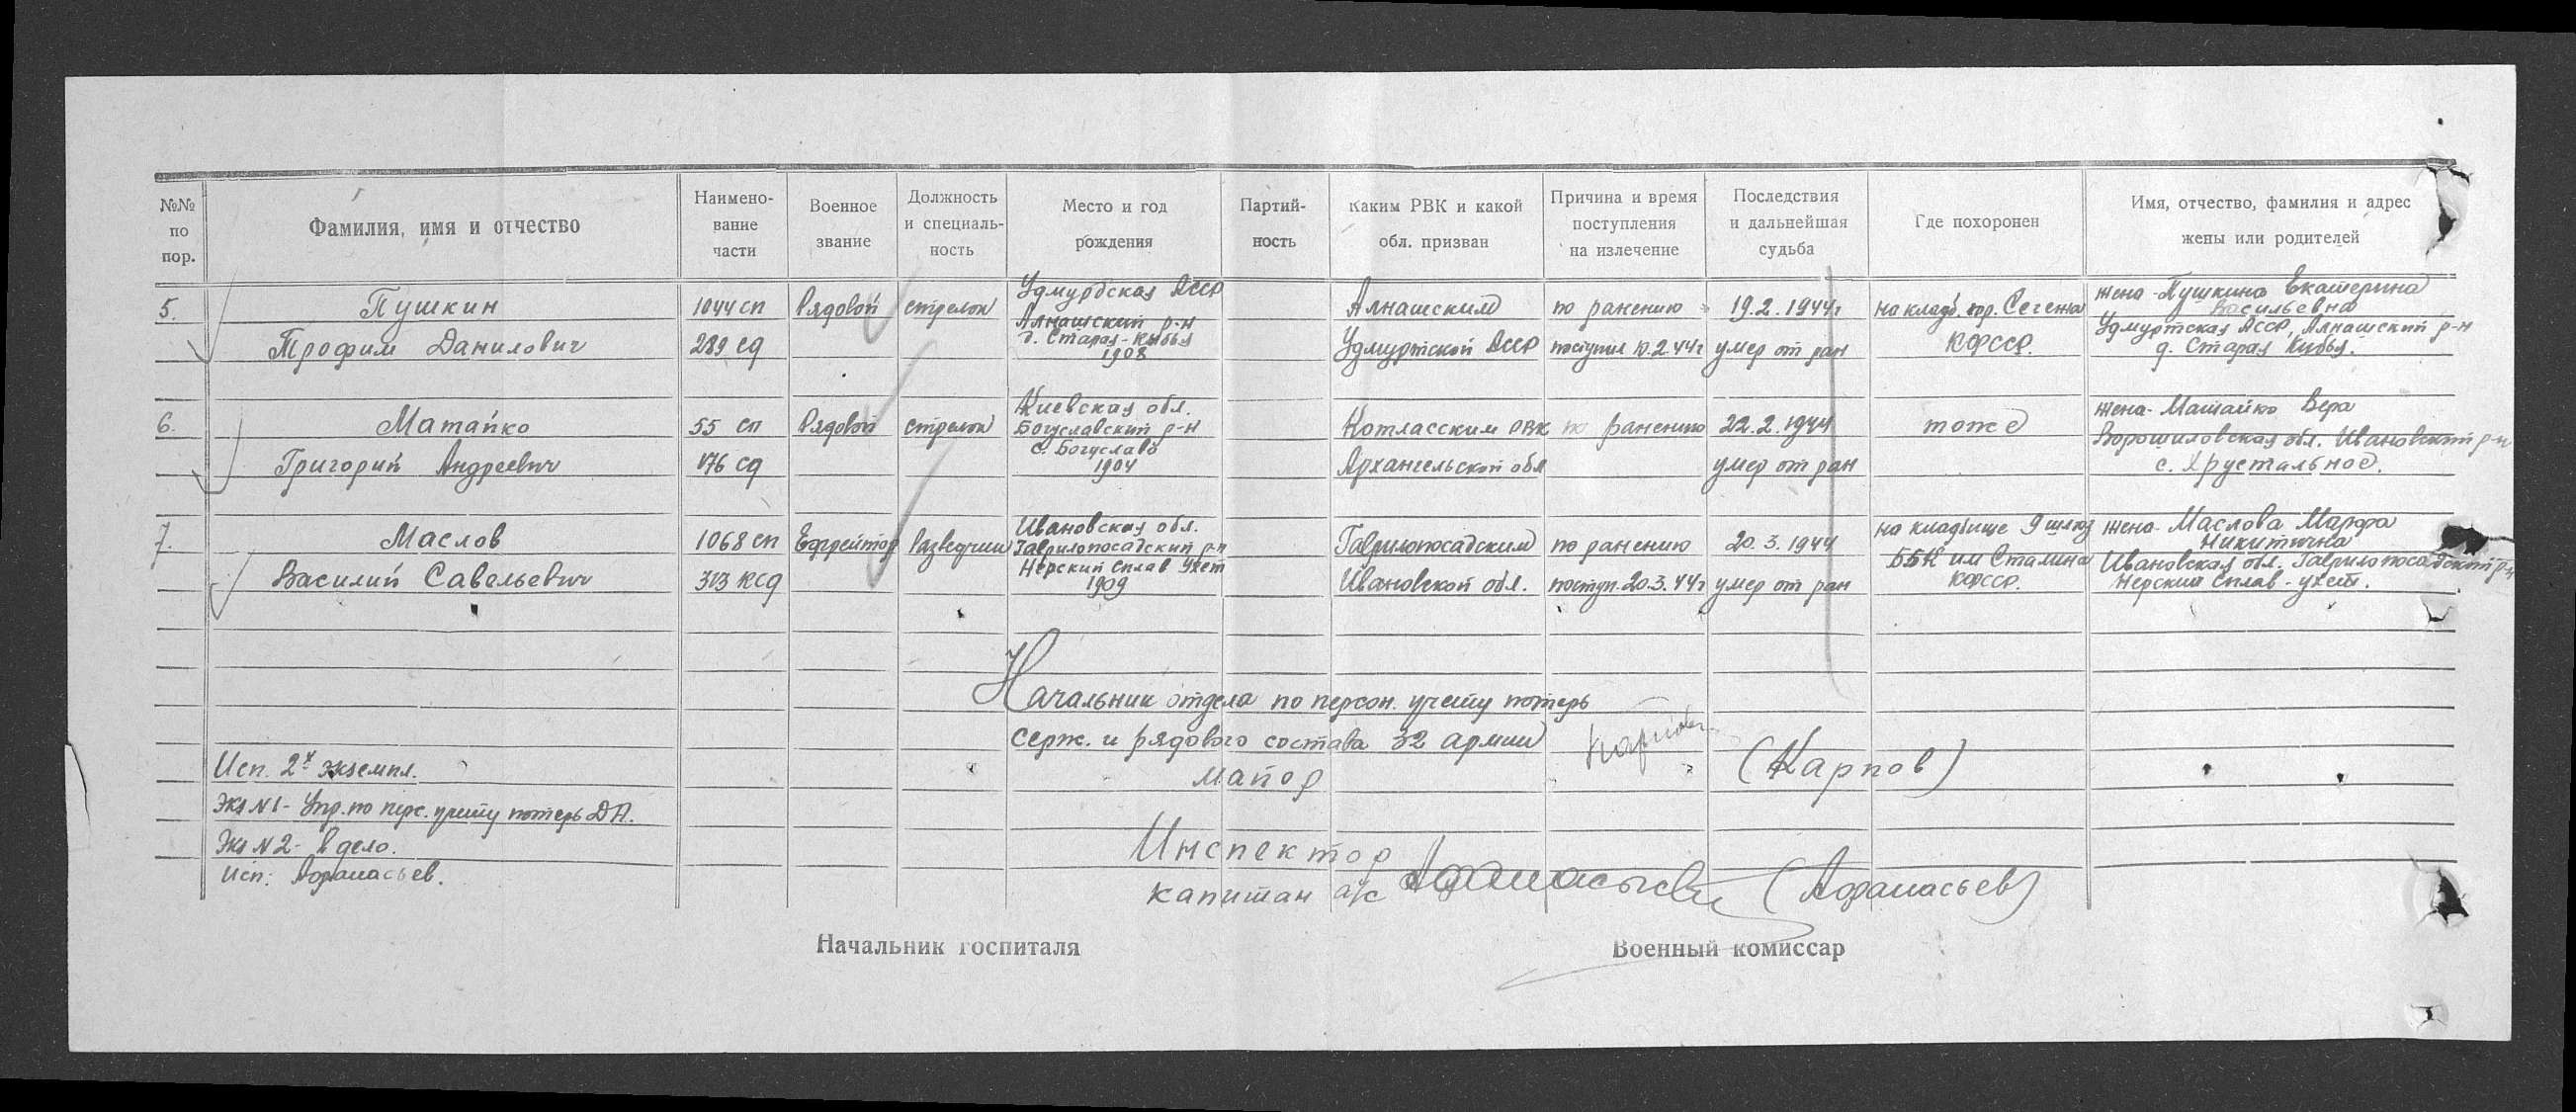 №№ по пор.
Фамилия, имя и отчество
Наимено-вание части
Военное звание
Должность и специаль-ность
Место и год рождения
Партий-ность
Каким РВК и какой обл. призван
Причина и время поступления на излечение
Последствия и дальнейшая судьба
Где похоронен
Имя, отчество, фамилия и адрес жены или родителей
5.
Пушкин
Трофим Данилович
1044 сп
289 сд
Рядовой
стрелок
Удмурдская АССР
Алнашский р-н
д. Старая-Кыбья
1908
Алнашским
Удмуртской АССР
по ранению
19.2.1944г
умер от ран
на кладб. гор. Сегежа
КФССР.
жена-Пушкина Екатерина
Васильевна
Удмуртская АССР, Алнашский р-н
д. Старая Кибья.
6.
Матайко
Григорий Андреевич
55 сп
176 сд
Рядовой
стрелок
Киевская обл.
Богуславский р-н
с. Богуслав
1904
Котласским РВК
Архангельской обл
по ранению
22.2.1944
умер от ран
тоже
жена-Матайко Вера
Ворошиловская обл. Ивановский р-н
с. Хрустальное.
7.
Маслов
Василий Савельевич
1068 сп
313 ксд
Ефрейтор
Разведчик
Ивановская обл.
Гаврилопосадский р-н
Нерский Сплав Ухст
1909
Гаврилопосадским
Ивановской обл.
по ранению
поступ. 20.3.44г
20.3.1944
умер от ран
на кладбище 9 шлюз
ББК им Сталина
КФССР.
жена-Маслова Марфа
Никитична
Ивановская обл. Гаврилопосадский р-н
Нерский Сплав-ухст.
Начальник отдела по персон. учету потерь
серж. и рядового состава 32 армии
майор
(Карпов)
Исп. 2х экземпл.
Экз N1- Упр. по перс. учету потерь ДА.
Экз N2- в дело.
Исп: Афанасьев.
Инспектор
капитан а/с Афанасьев (Афанасьев)
Начальник госпиталя
Военный комиссар